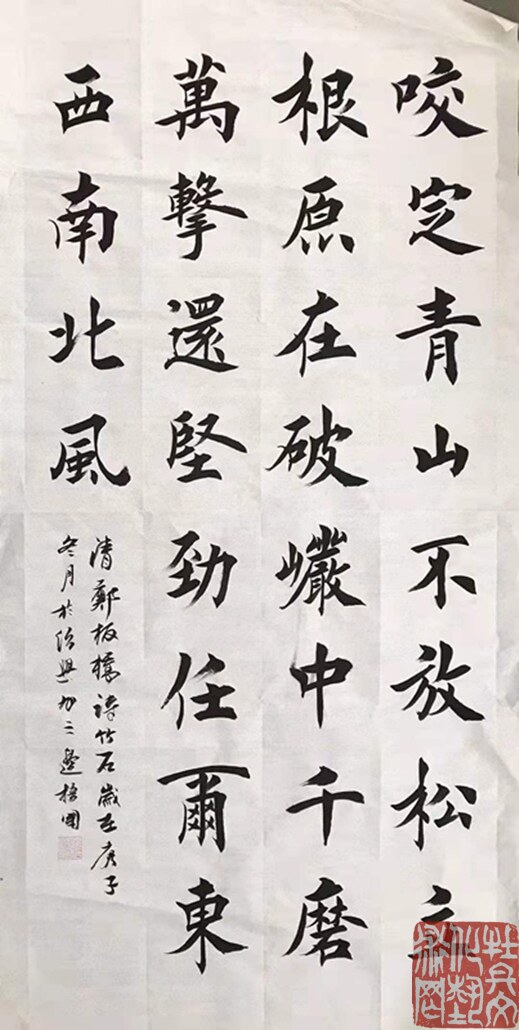 咬定青山不放松立
根原在破巖中千磨
萬擊還堅勁任爾東
西南北風
清鄭板橋詩竹石歲在庚子
冬月於